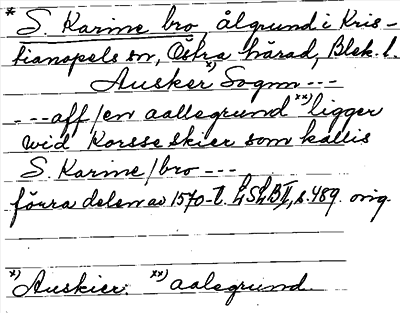 * S. Karine bro, ålgrund i Kris-
tianopels sn, Östra härad, Blek. l.
Ausker x) Sognn ---
---aff /en aallegrund xx) ligger
wid Korsse skier som kallis
S. Karine/bro ---
förra delen av 1570-t. LSLB II, s. 489. orig.
x) Auskier. xx) aalegrund.